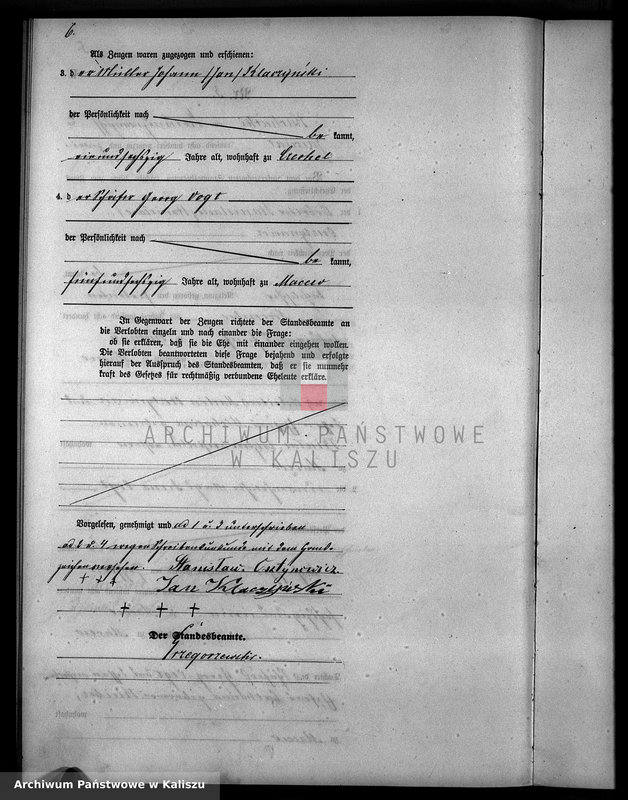 6.
Als Zeugen waren zugezogen und erschienen:
3. d er Müller Johann (Jan) Klaczyński
der Persönlichkeit nach
be kannt,
einundsechszig Jahre alt, wohnhaft zu
4. d er Schäfer Georg Vogt
der Persönlichkeit nach
be kannt,
fünfundsechszig Jahre alt, wohnhaft zu Macew
In Gegenwart der Zeugen richtete der Standesbeamte an
die Verlobten einzeln und nach einander die Frage:
ob sie erklären, daß sie die Ehe mit einander eingehen wollen.
Die Verlobten beantworteten diese Frage bejahend und erfolgte
hierauf der Ausspruch des Standesbeamten, daß er sie nunmehr
kraft des Gesetzes für rechtmäßig verbundene Eheleute erkläre.
ARCHIWUM PAŃSTWOWE
W KALISZU
Vorgelesen, genehmigt und ad 1 u. 3 unterschrieben
ad 2 u. 4 wegen Schreibensunkunde mit dem Hand-
zeichen versehen. Stanislau
+ + + Jan Klaczyński
+ + +
Der Standesbeamte.
Grzegorzewski.
Archiwum Państwowe w Kaliszu